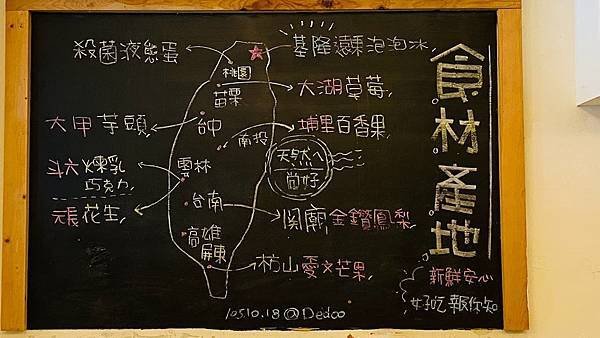 食材產地
殺菌液態蛋
基隆懷東泡泡冰
桃園
苗栗
大湖草莓
大甲芋頭
台中
南投
埔里百香果
天然ㄟ
尚好
斗六煉乳
巧克力
雲林
元長花生
台南
関廟金鑽鳳梨
高雄
屏東
枋山愛文芒果
新鮮安心
好吃報你知
105.10.18@Dedoo